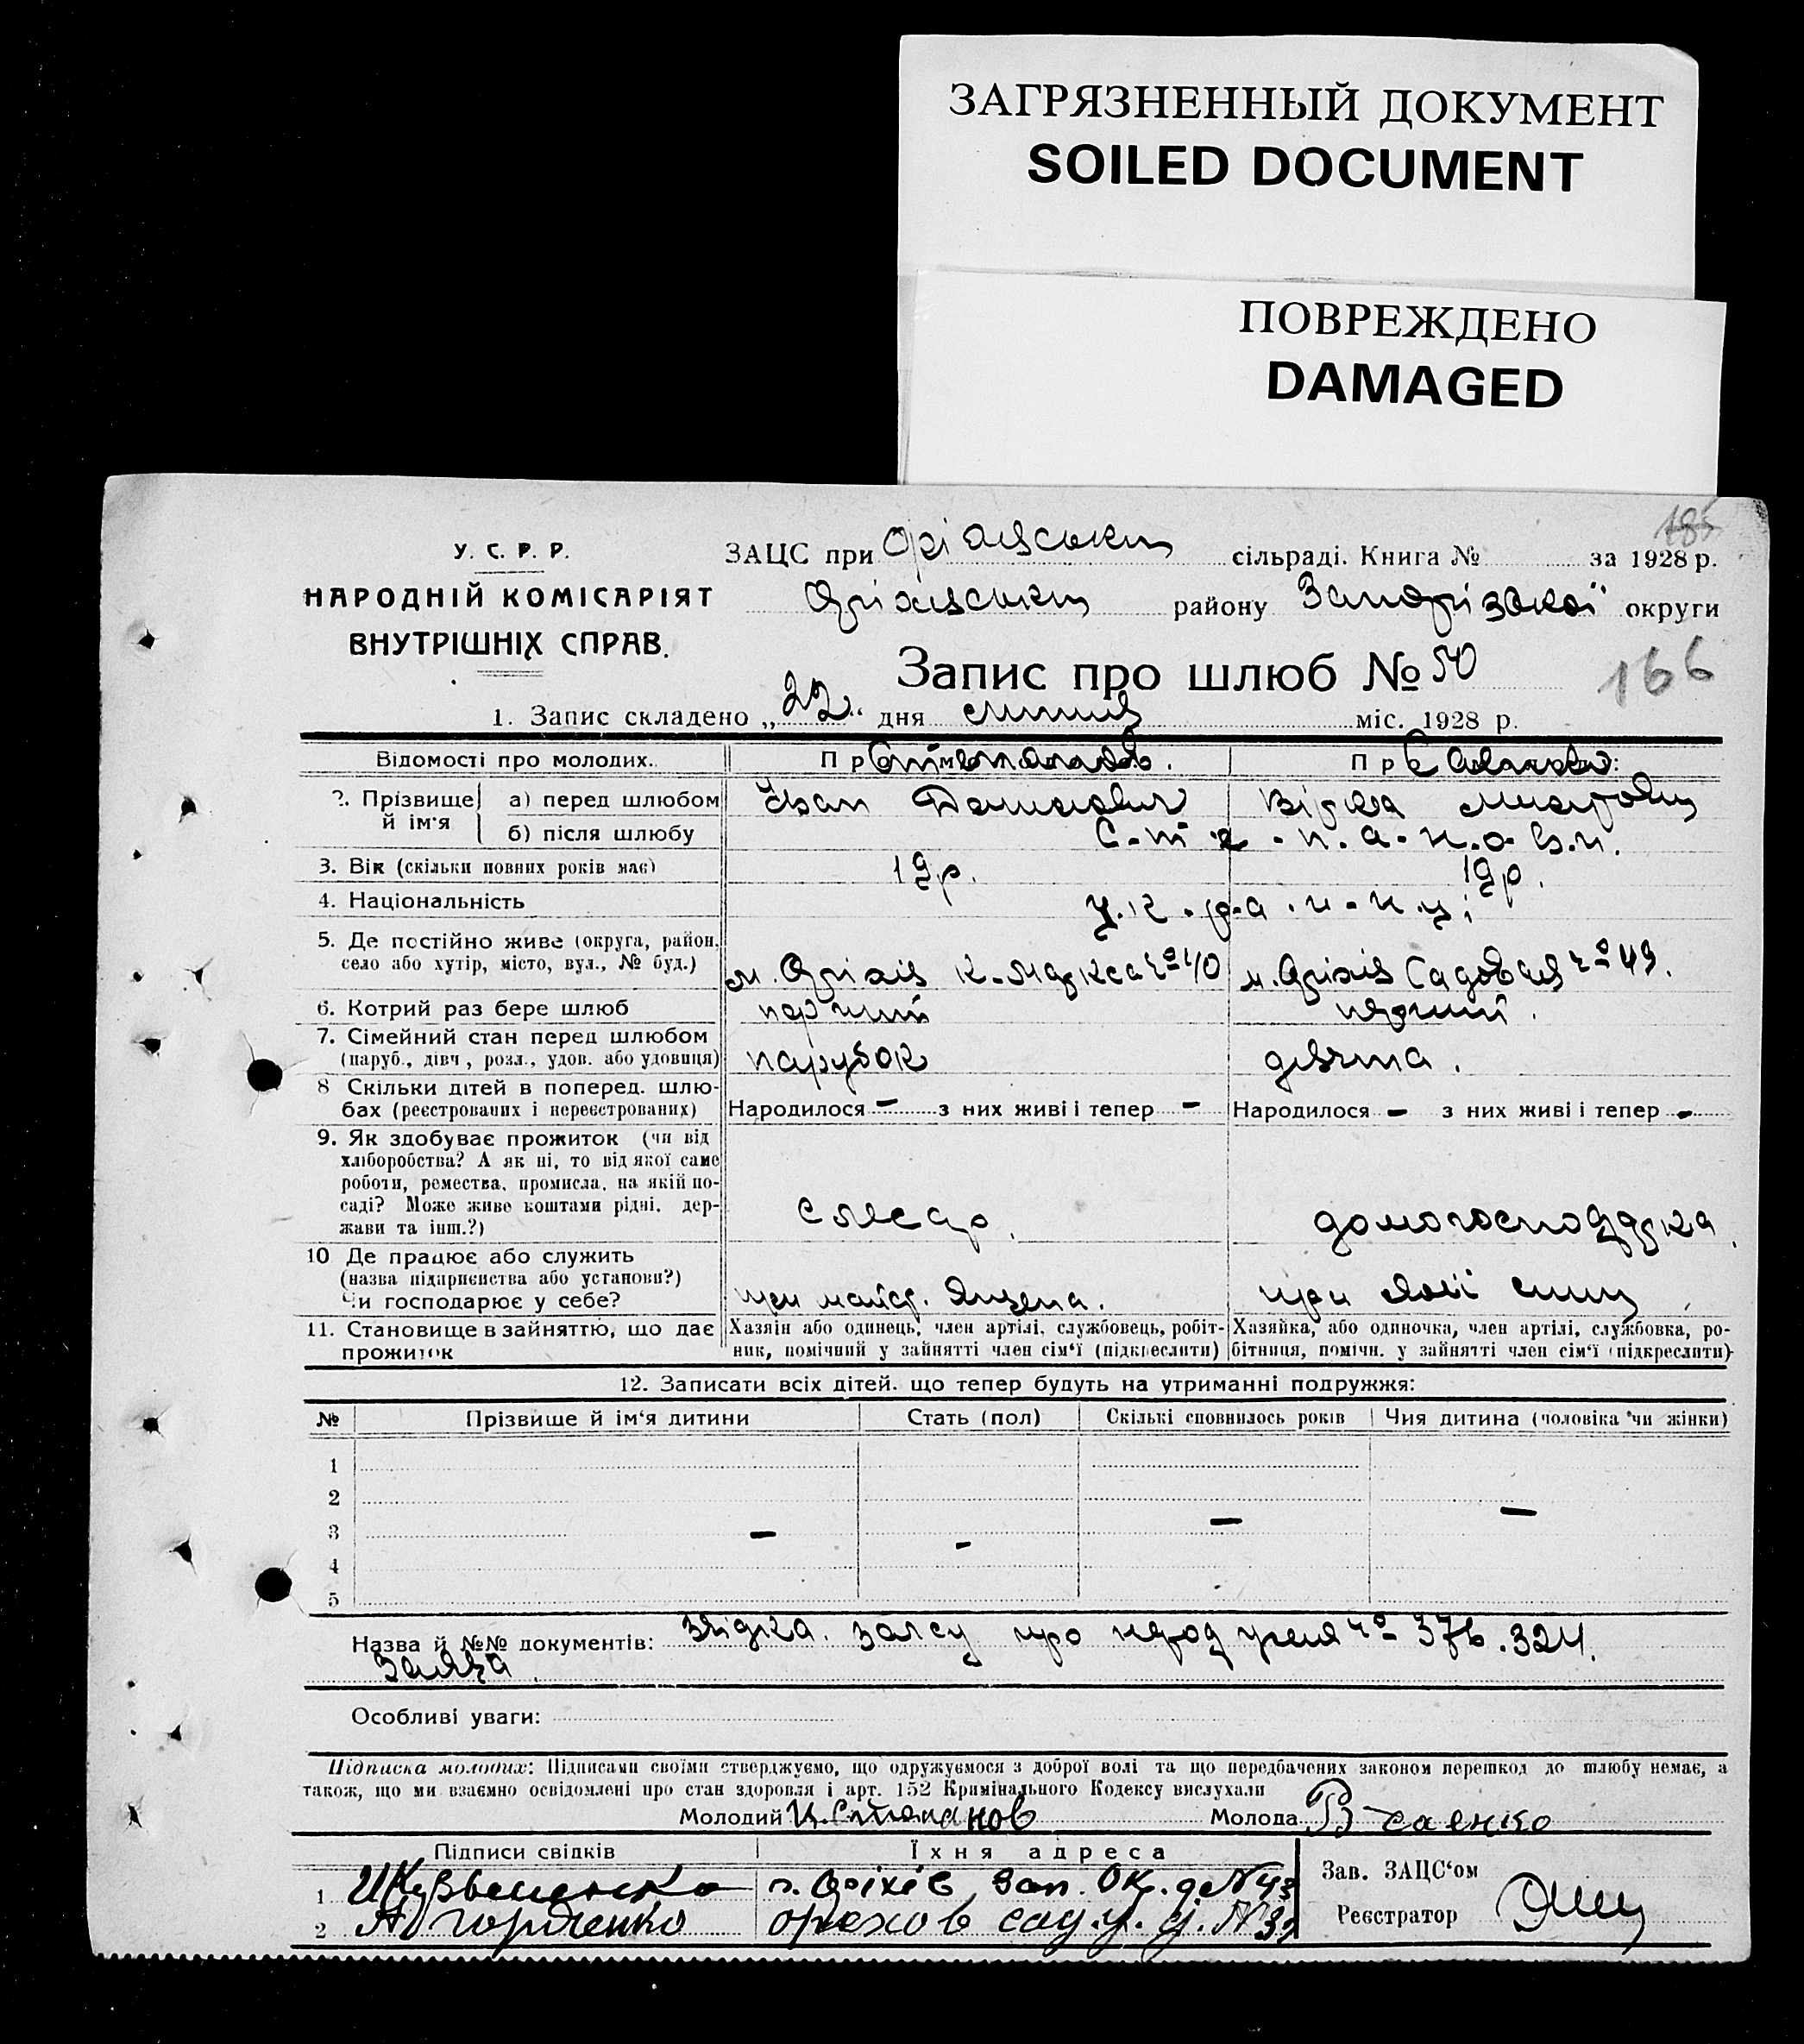 ЗАГРЯЗНЕННЫЙ ДОКУМЕНТ
SOILED DOCUMENT
ПОВРЕЖДЕНО
DAMAGED
185
У. С. Р. Р.
НАРОДНІЙ КОМІСАРІЯТ
ВНУТРІШНІХ СПРАВ.
ЗАЦС при Оріхівськи сільраді. Книга № за 1928 р.
Оріхівськи району Запорізької округи
Запис про шлюб № 50
166
1. Запис складено „22" дня липня міс. 1928 р.
Відомості про молодих. Степанов Саєнко
2. Прізвище й ім'я а) перед шлюбом Іван Данилович Вірка
б) після шлюбу С-т-е-п-а-н-о-в-и.
3. Вік (скільки повних років має) 19 р. 19 р.
4. Національність у-к-р-а-ї-н-ц-і
5. Де постійно живе (округа, район, село або хутір, місто, вул., № буд.) м. Оріхів К-Маркса № 40 м. Оріхів Садовая № 49.
6. Котрий раз бере шлюб перший перший.
7. Сімейний стан перед шлюбом (паруб., дівч., розл., удов. або удовиця) парубок дівчина.
8 Скільки дітей в поперед. шлюбах (реєстрованих і нереєстрованих) Народилося – з них живі і тепер – Народилося – з них живі і тепер –
9. Як здобуває прожиток (чи від хліборобства? А як ні, то від якої саме роботи, ремества, промисла, на якій посаді? Може живе коштами рідні, держави та інш.?) слесар. домогосподарка.
10 Де працює або служить (назва підприємства або установи?) Чи господарює у себе? при майст. при своїй
11. Становище в зайняттю, що дає прожиток Хазяїн або одинець, член артілі, службовець, робітник, помічний у зайнятті член сім'ї (підкреслити) Хазяйка, або одиночка, член артілі, службовка, робітниця, помічн. у зайнятті член сім'ї (підкреслити)
12. Записати всіх дітей, що тепер будуть на утриманні подружжя:
№ Прізвище й ім'я дитини Стать (пол) Скількі сповнилось років Чия дитина (чоловіка чи жінки)
1
2
3 – – – –
4
5
Назва й №№ документів: Звідка загсу про народження № 376. 324.
Заява.
Особливі уваги:
Підписка молодих: Підписами своїми стверджуємо, що одружуємося з доброї волі та що передбачених законом перешкод до шлюбу немає, а
також, що ми взаємно освідомлені про стан здоровля і арт. 152 Кримінального Кодексу вислухали
Молодий И. Степанов Молода В Саенко
Підписи свідків Їхня адреса
1 И Кузьменко г. Оріхів Зап. Ок. д № 43
2 А Горпченко орехов сад. у. д. № 39
Зав. ЗАЦС'ом
Реєстратор